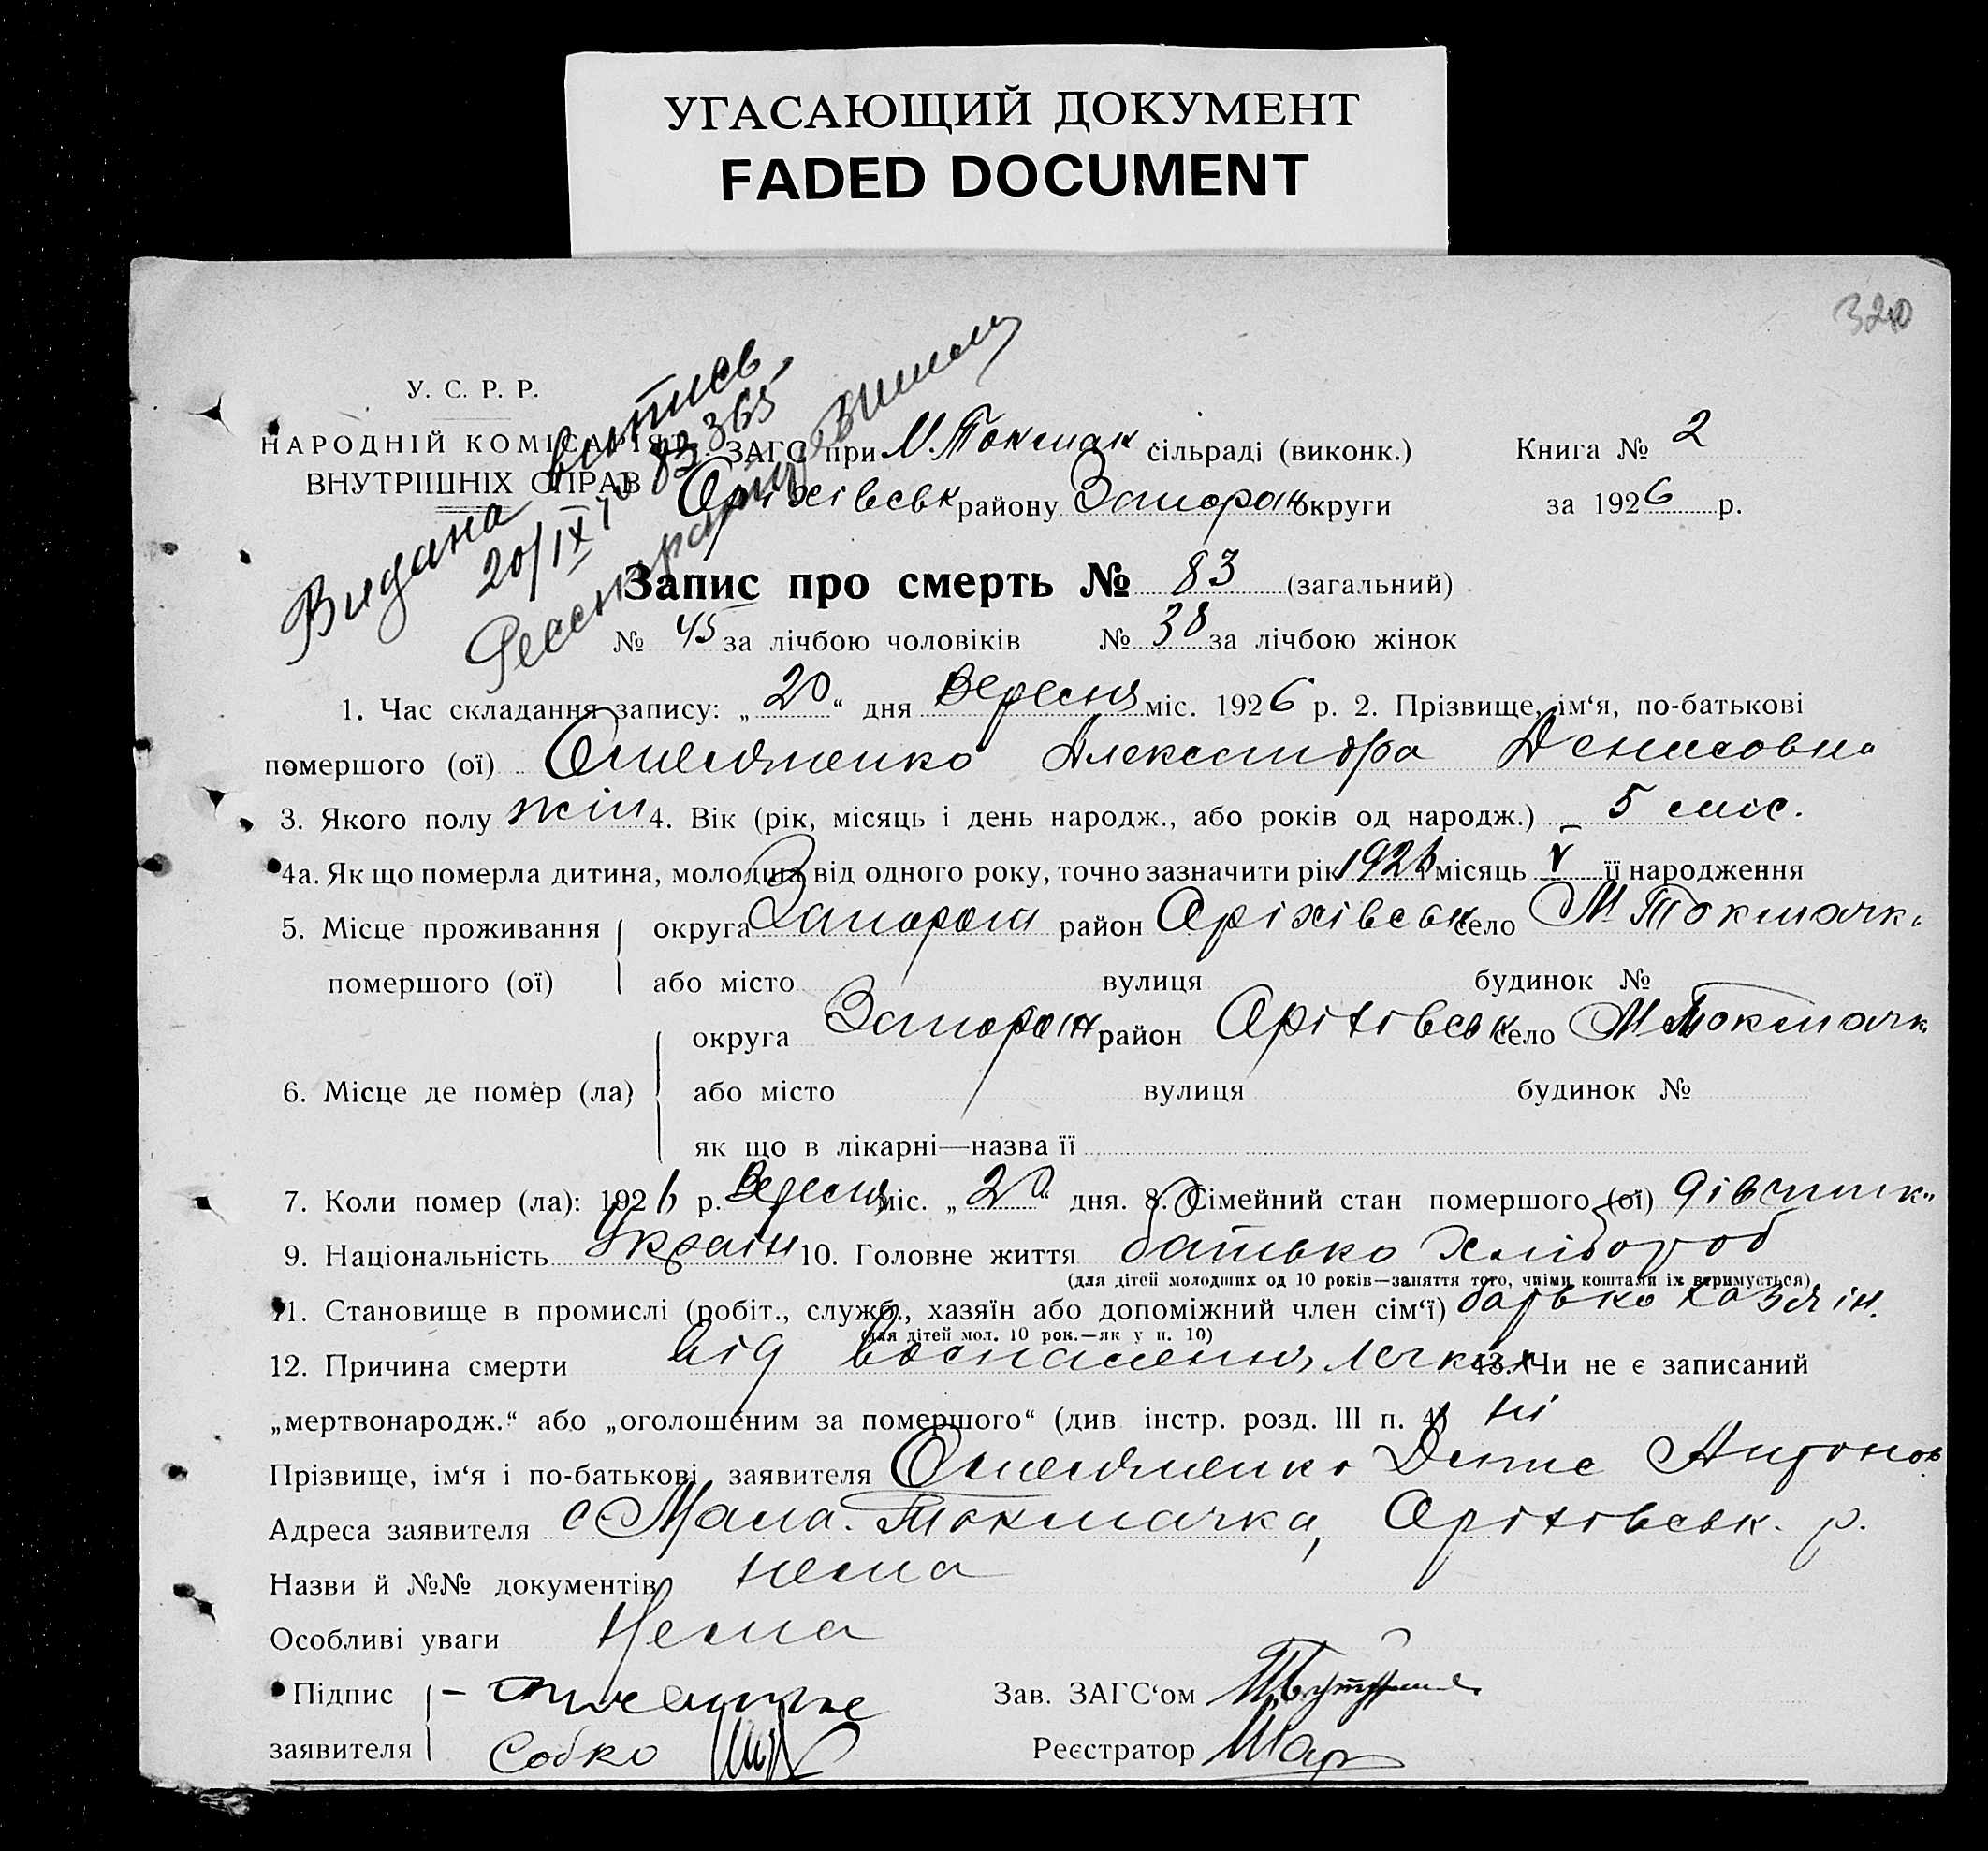 УГАСАЮЩИЙ ДОКУМЕНТ
FADED DOCUMENT
320
У. С. Р. Р.
НАРОДНІЙ КОМІСАРІЯТ
ВНУТРІШНІХ СПРАВ
Видана випись
20/IX № 83365
ЗАГС при М. Токмак сільраді (виконк.) Книга № 2
Оріхівськ району Запорож округи за 1926 р.
Запис про смерть № 83 (загальний)
№ 45 за лічбою чоловіків № 38 за лічбою жінок
1. Час складання запису: „20“ дня Вересня міс. 1926 р. 2. Прізвище, ім‘я, по-батькові
помершого (ої) Омельяненко Александра Денисовна
3. Якого полу жін 4. Вік (рік, місяць і день народж., або років од народж.) 5 міс.
4а. Як що померла дитина, молодша від одного року, точно зазначити рік 1926 місяць V її народження
5. Місце проживання округа Запорож район Оріхівськ село М Токмачк
помершого (ої) або місто вулиця будинок №
округа Запорож район Оріхівськ село М Токмачк
6. Місце де помер (ла) або місто вулиця будинок №
як що в лікарні—назва її
7. Коли помер (ла): 1926 р. Вересня міс. „20“ дня. 8. Сімейний стан помершого (ої) дівчинк
9. Національність Україн 10. Головне життя батько хлібороб
(для дітей молодших од 10 років—заняття того, чиїми коштами їх втримується)
11. Становище в промислі (робіт., служб., хазяїн або допоміжний член сім‘ї) батько хазяін.
(для дітей мол. 10 рок.—як у п. 10)
12. Причина смерти від воспаления легких 13. Чи не є записаний
„мертвонародж.“ або „оголошеним за помершого“ (див інстр. розд. III п. 4) ні
Прізвище, ім‘я і по-батькові заявителя Омельяненко Денис Антонов
Адреса заявителя с Мала. Токмачка, Оріхівськ. р.
Назви й №№ документів нема
Особливі уваги Нема
Підпис Зав. ЗАГС‘ом
заявителя Собко Реєстратор